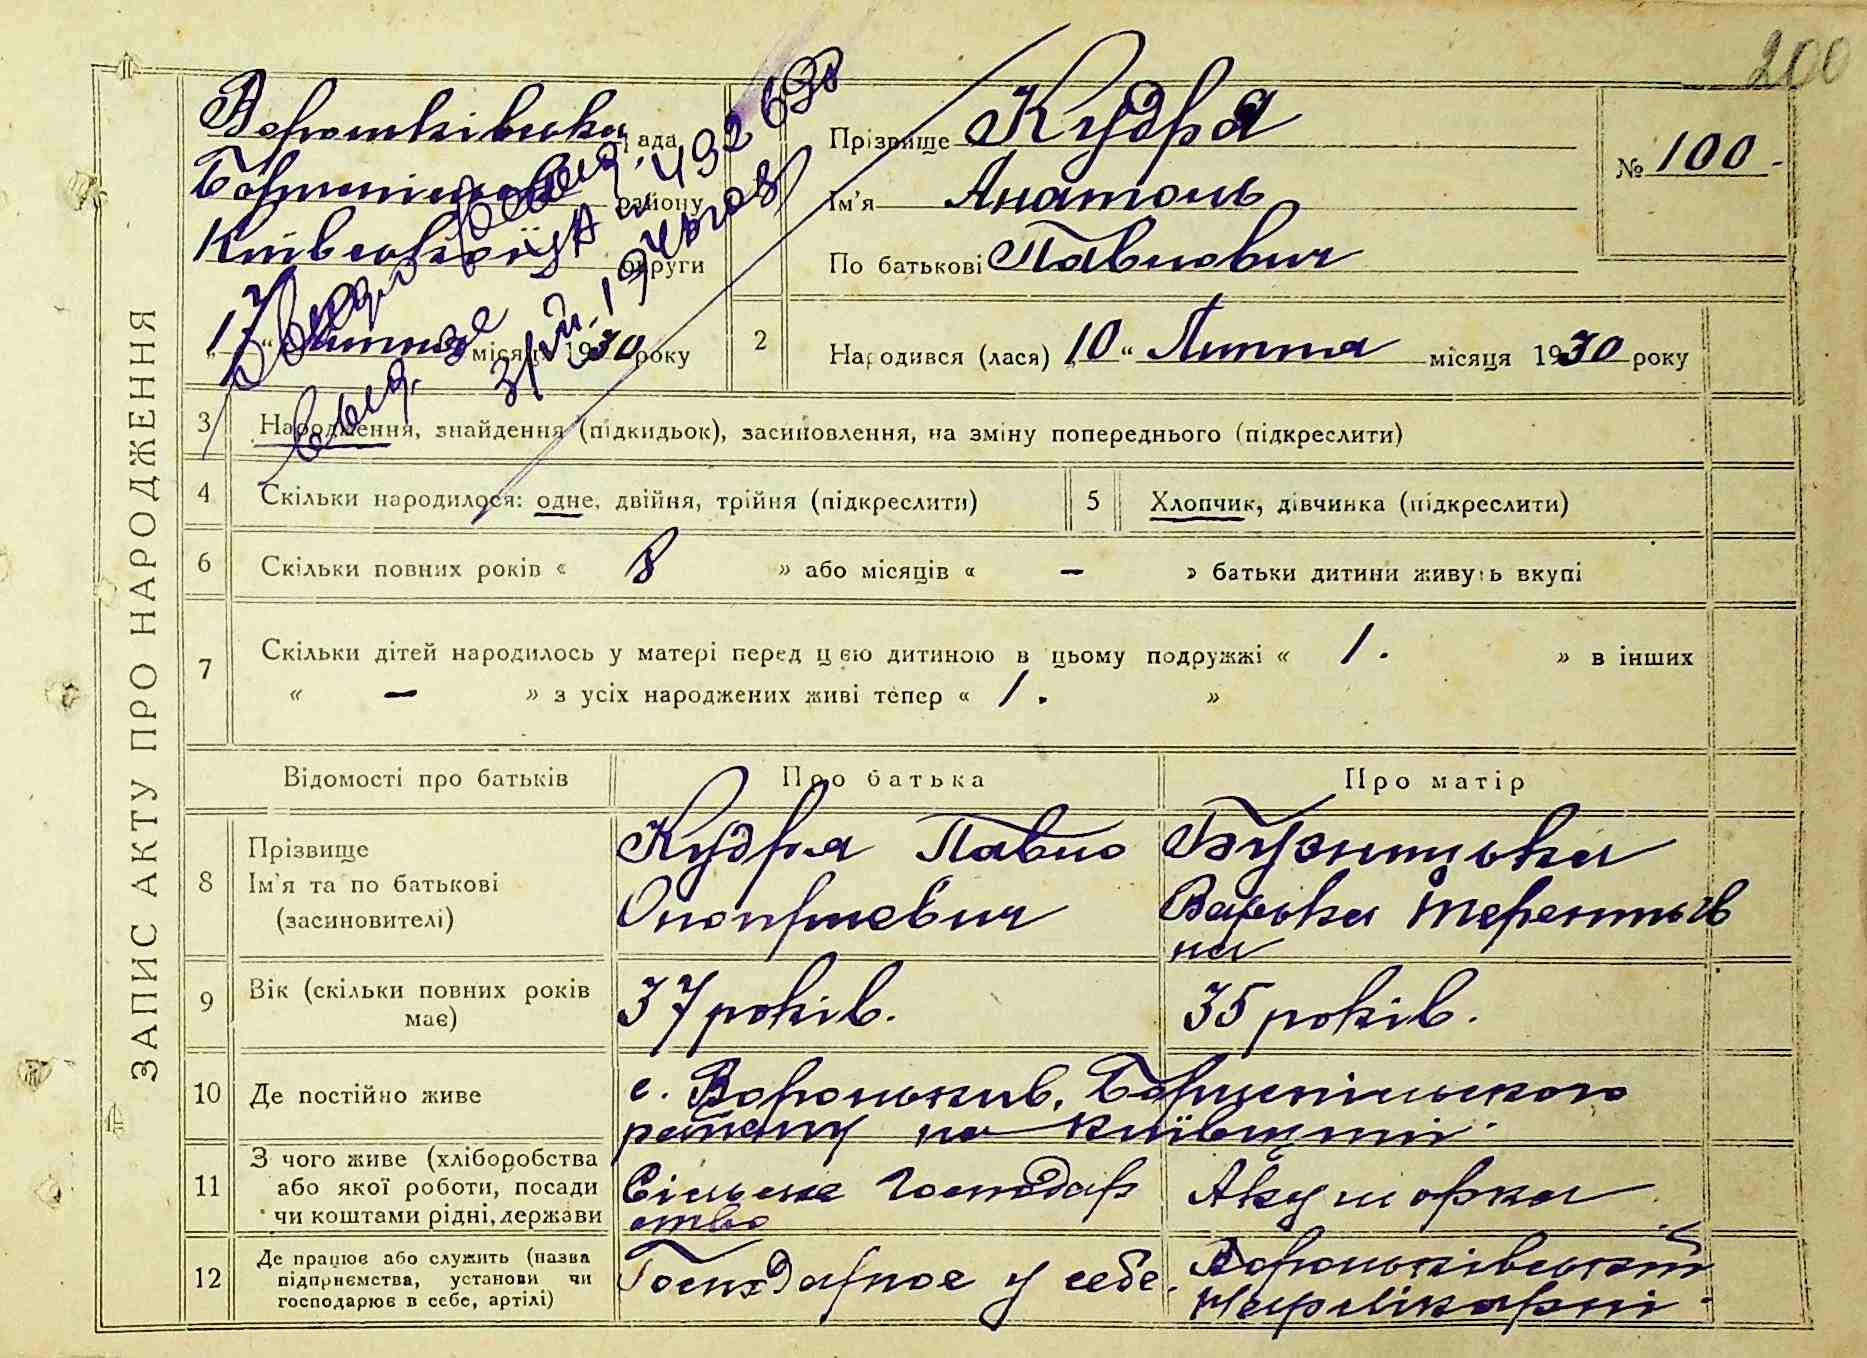 200
ЗАПИС АКТУ ПРО НАРОДЖЕННЯ
Рада
району
Київської округи
17 Липня місяця 1930 року
Прізвище Кудря
Ім'я Анатоль
По батькові Павлович
№ 100
2 Народився (лася) „10" Липня місяця 1930 року
3 Народження, знайдення (підкидьок), засиновлення, на зміну попереднього (підкреслити)
4 Скільки народилося: одне, двійня, трійня (підкреслити)
5 Хлопчик, дівчинка (підкреслити)
6 Скільки повних років « 8 » або місяців « – » батьки дитини живуть вкупі
7 Скільки дітей народилось у матері перед цією дитиною в цьому подружжі « 1. » в інших
« – » з усіх народжених живі тепер « 1. »
Відомості про батьків Про батька Про матір
8 Прізвище
Ім'я та по батькові
(засиновителі)
Кудря Павло
Оноприєвич
Варька Терентьїв
на
9 Вік (скільки повних років
має)
37 років.
35 років.
10 Де постійно живе
с. Вороньків, Бориспільського
району на Київщині.
11 З чого живе (хліборобства
або якої роботи, посади
чи коштами рідні, держави
Сільське Господар
ство
Акушорка
12 Де працює або служить (назва
підприємства, установи чи
господарює в себе, артілі)
Господарює у себе.
Вороньківський